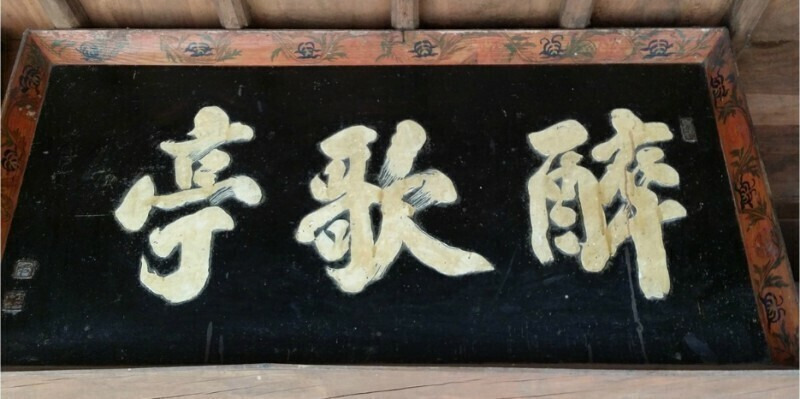 醉歌亭